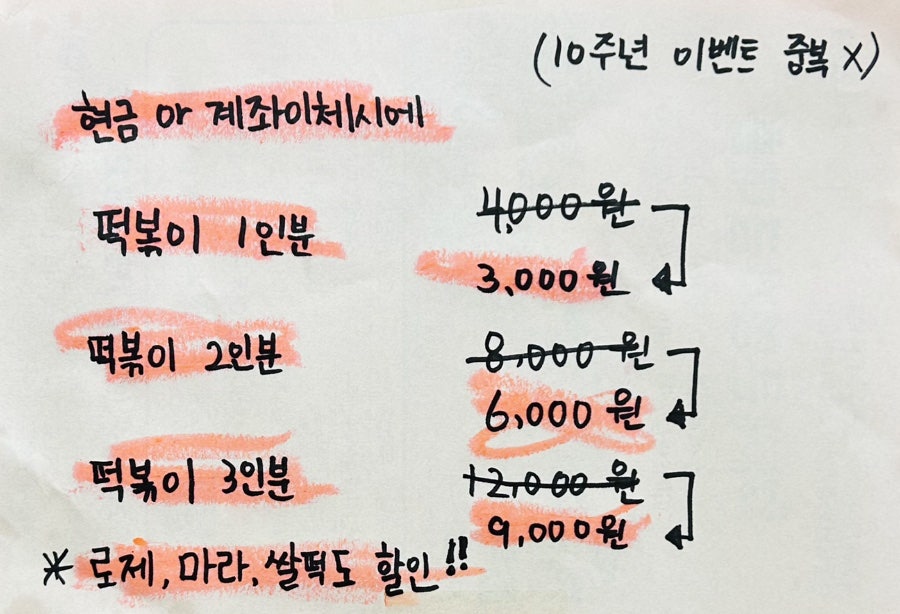 (10주년 이벤트 중복 X)
현금 or 계좌이체시에
떡볶이 1인분 4,000원
3,000원
떡볶이 2인분 8,000원
6,000원
떡볶이 3인분 12,000원
9,000원
* 로제, 마라, 쌀떡도 할인!!